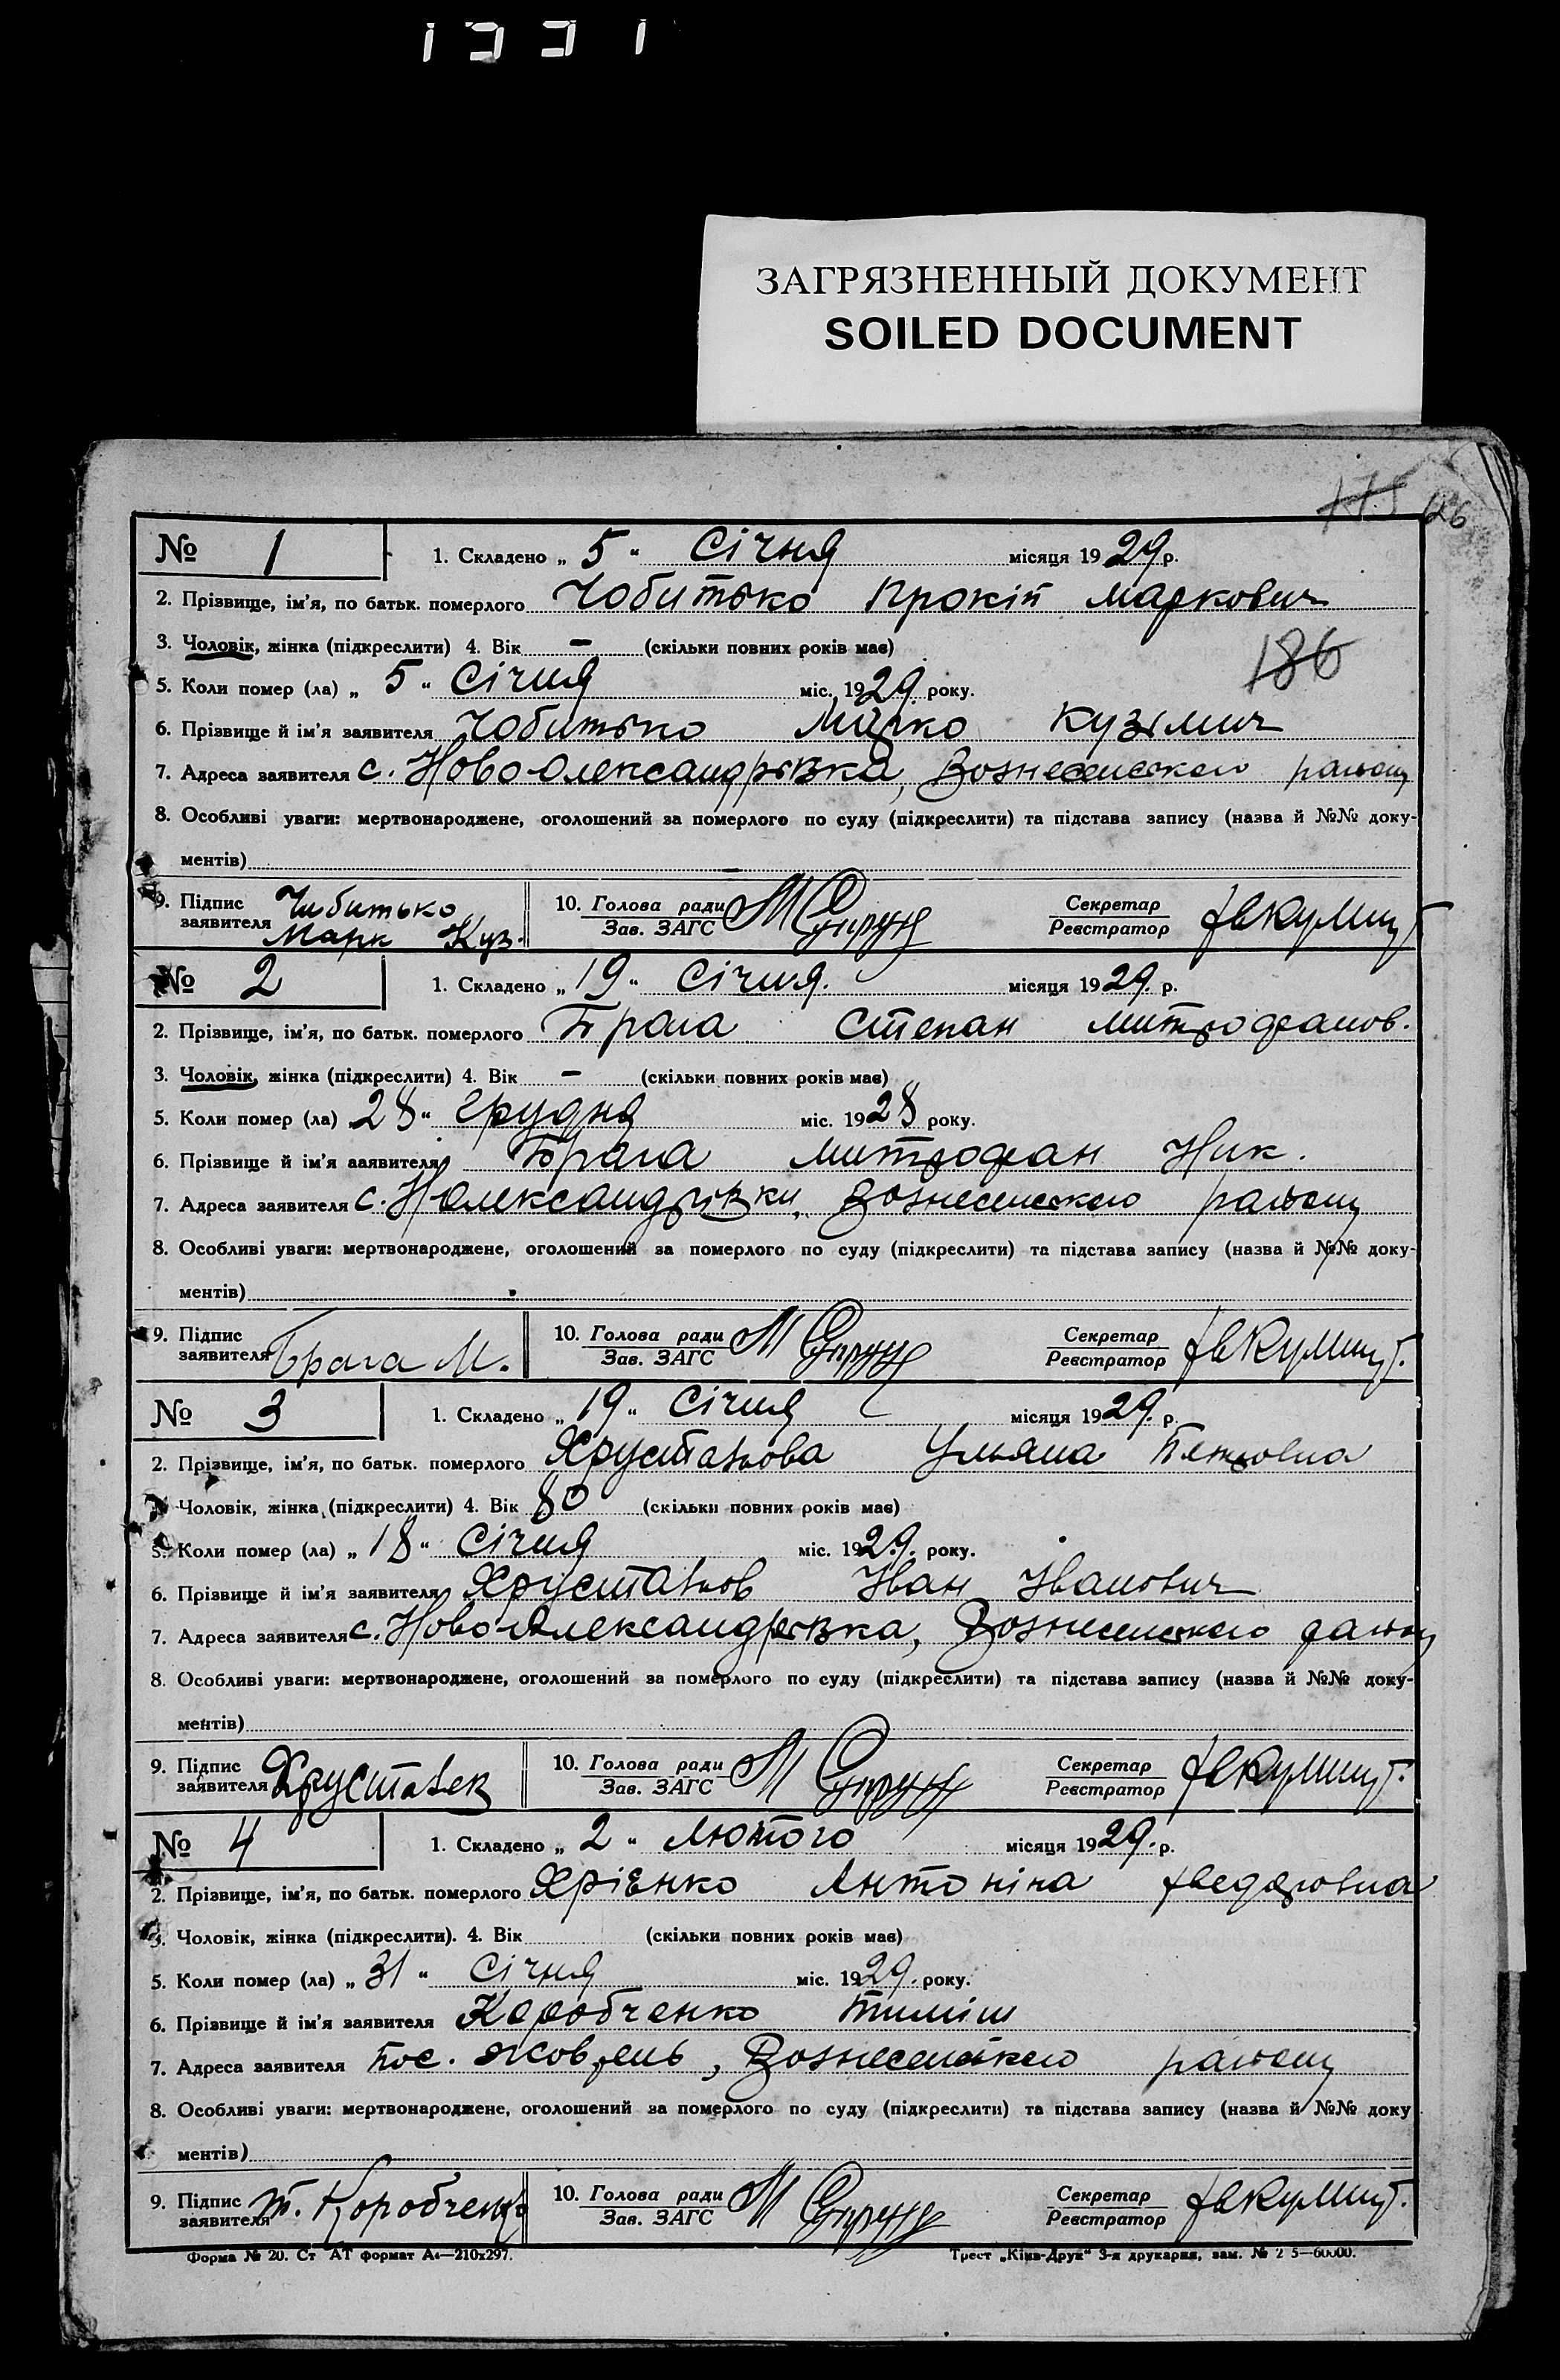 ЗАГРЯЗНЕННЫЙ ДОКУМЕНТ
SOILED DOCUMENT
175 126
№ 1 1. Складено „ 5 “ Січня місяця 1929 р.
2. Прізвище, ім’я, по батьк. померлого Чобитько Прокіп Маркович
3. Чоловік, жінка (підкреслити) 4. Вік – (скільки повних років має)
186
5. Коли помер (ла) „ 5 “ Січня міс. 1929. року.
6. Прізвище й ім’я заявителя Чобитько Марко Кузьмич
7. Адреса заявителя с. Ново Олександрівка, Вознесенського району
8. Особливі уваги: мертвонароджене, оголошений за померлого по суду (підкреслити) та підстава запису (назва й №№ доку-
ментів)
9. Підпис заявителя Чибитько Марк Куз. 10. Голова ради Зав. ЗАГС Секретар Реєстратор
№ 2 1. Складено „ 19 “ Січня. місяця 1929. р.
2. Прізвище, ім’я, по батьк. померлого Брага Степан Митрофанов.
3. Чоловік, жінка (підкреслити) 4. Вік – (скільки повних років має)
5. Коли помер (ла) 28 “ Грудня міс. 1928 року.
6. Прізвище й ім’я заявителя Брага Митрофан Ник.
7. Адреса заявителя с. Н Олександрівки, Вознесенського району
8. Особливі уваги: мертвонароджене, оголошений за померлого по суду (підкреслити) та підстава запису (назва й №№ доку-
ментів)
9. Підпис заявителя Брага М. 10. Голова ради Зав. ЗАГС Секретар Реєстратор
№ 3 1. Складено „ 19 “ Січня місяця 1929. р.
2. Прізвище, ім’я, по батьк. померлого Хрустальова Уляна Петровна
3. Чоловік, жінка (підкреслити) 4. Вік 80 (скільки повних років має)
5. Коли помер (ла) „ 18 “ Січня міс. 1929. року.
6. Прізвище й ім’я заявителя Хрустальов Іван Іванович
7. Адреса заявителя с. Ново Олександрівка, Вознесенського району
8. Особливі уваги: мертвонароджене, оголошений за померлого по суду (підкреслити) та підстава запису (назва й №№ доку-
ментів)
9. Підпис заявителя 10. Голова ради Зав. ЗАГС Секретар Реєстратор
№ 4 1. Складено „ 2 “ Лютого місяця 1929. р.
2. Прізвище, ім’я, по батьк. померлого Хрієнко Антоніна Хведоровна
3. Чоловік, жінка (підкреслити). 4. Вік (скільки повних років має)
5. Коли помер (ла) „ 31 “ Січня міс. 1929. року.
6. Прізвище й ім’я заявителя Коробченко Тиміш
7. Адреса заявителя Пос. Жовтень, Вознесенського району
8. Особливі уваги: мертвонароджене, оголошений за померлого по суду (підкреслити) та підстава запису (назва й №№ доку
ментів)
9. Підпис заявителя Т. Коробченко 10. Голова ради Зав. ЗАГС Секретар Реєстратор
Форма № 20. Ст АТ формат А₄—210х297. Трест „Київ-Друк“ 3-я друкарня, зам. №